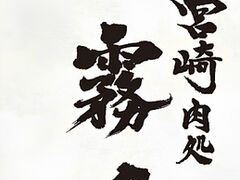 宮崎肉処
霧